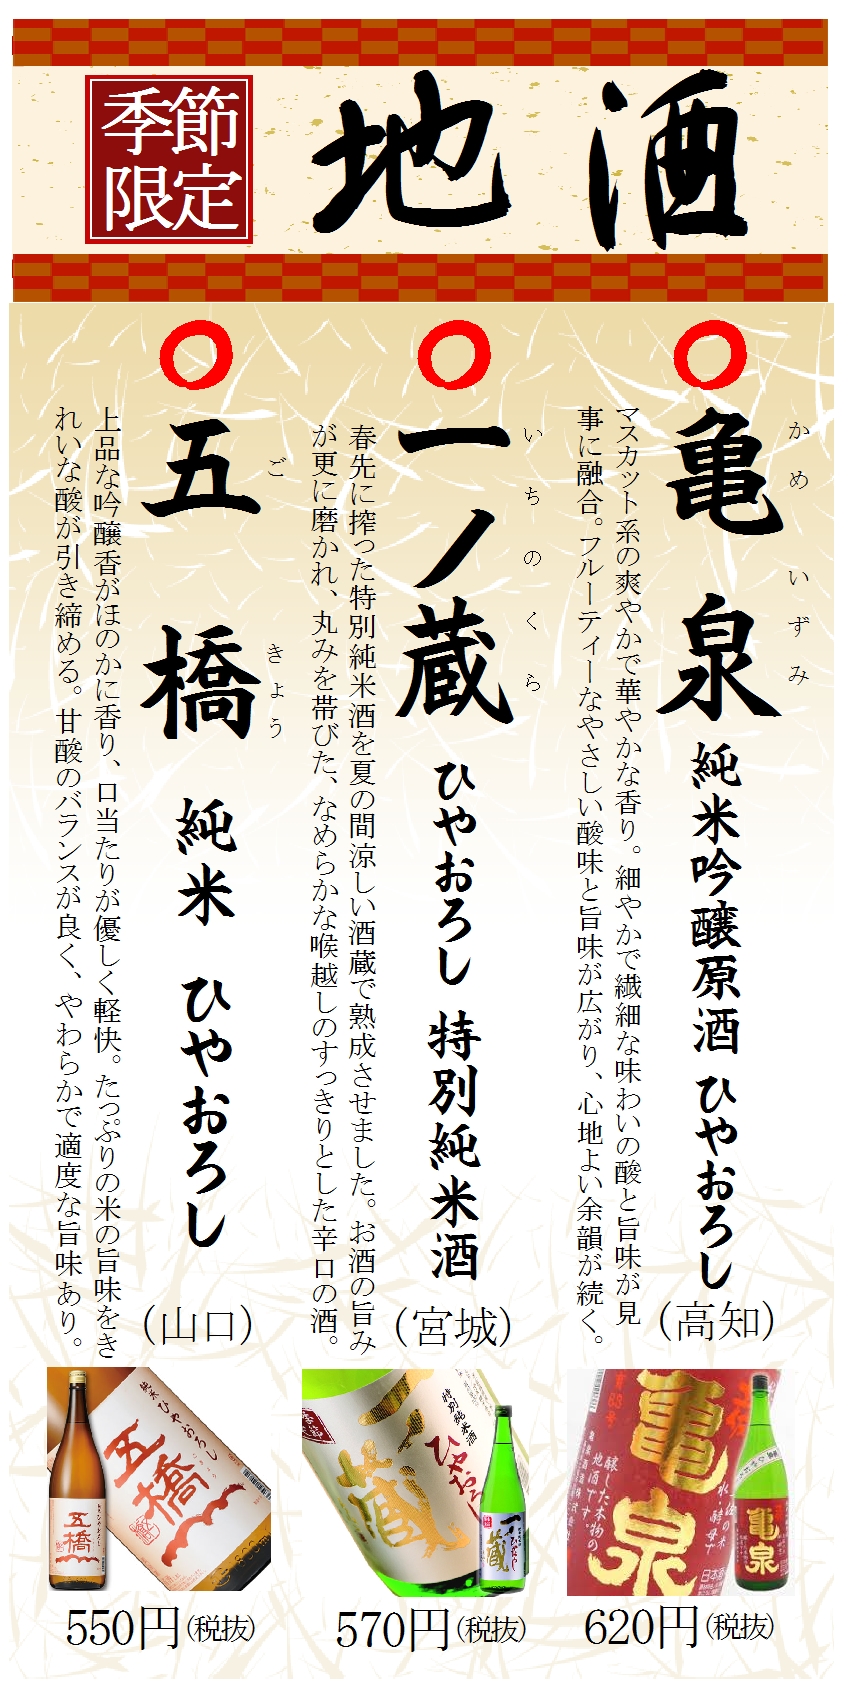 季節
限定
地酒
亀泉
かめ いずみ
純米吟醸原酒 ひやおろし
(高知)
マスカット系の爽やかで華やかな香り。細やかで繊細な味わいの酸と旨味が見
事に融合。フルーティーなやさしい酸味と旨味が広がり、心地よい余韻が続く。
一ノ蔵
いちのくら
ひやおろし 特別純米酒
(宮城)
春先に搾った特別純米酒を夏の間涼しい酒蔵で熟成させました。お酒の旨み
が更に磨かれ、丸みを帯びた、なめらかな喉越しのすっきりとした辛口の酒。
五橋
ご きょう
純米 ひやおろし
(山口)
上品な吟醸香がほのかに香り、口当たりが優しく軽快。たっぷりの米の旨味をき
れいな酸が引き締める。甘酸のバランスが良く、やわらかで適度な旨味あり。
純米 ひやおろし
五橋
五橋
特別純米酒
ひやおろ
一ノ蔵
一ノ蔵
亀泉
醸した本物の
地酒です。
日本酒
亀泉
550円(税抜)
570円(税抜)
620円(税抜)